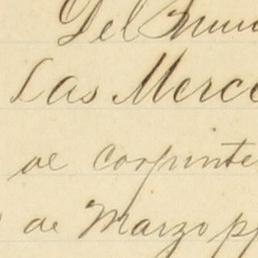 Del
Las Merce
de carpinte
de Marzo pp